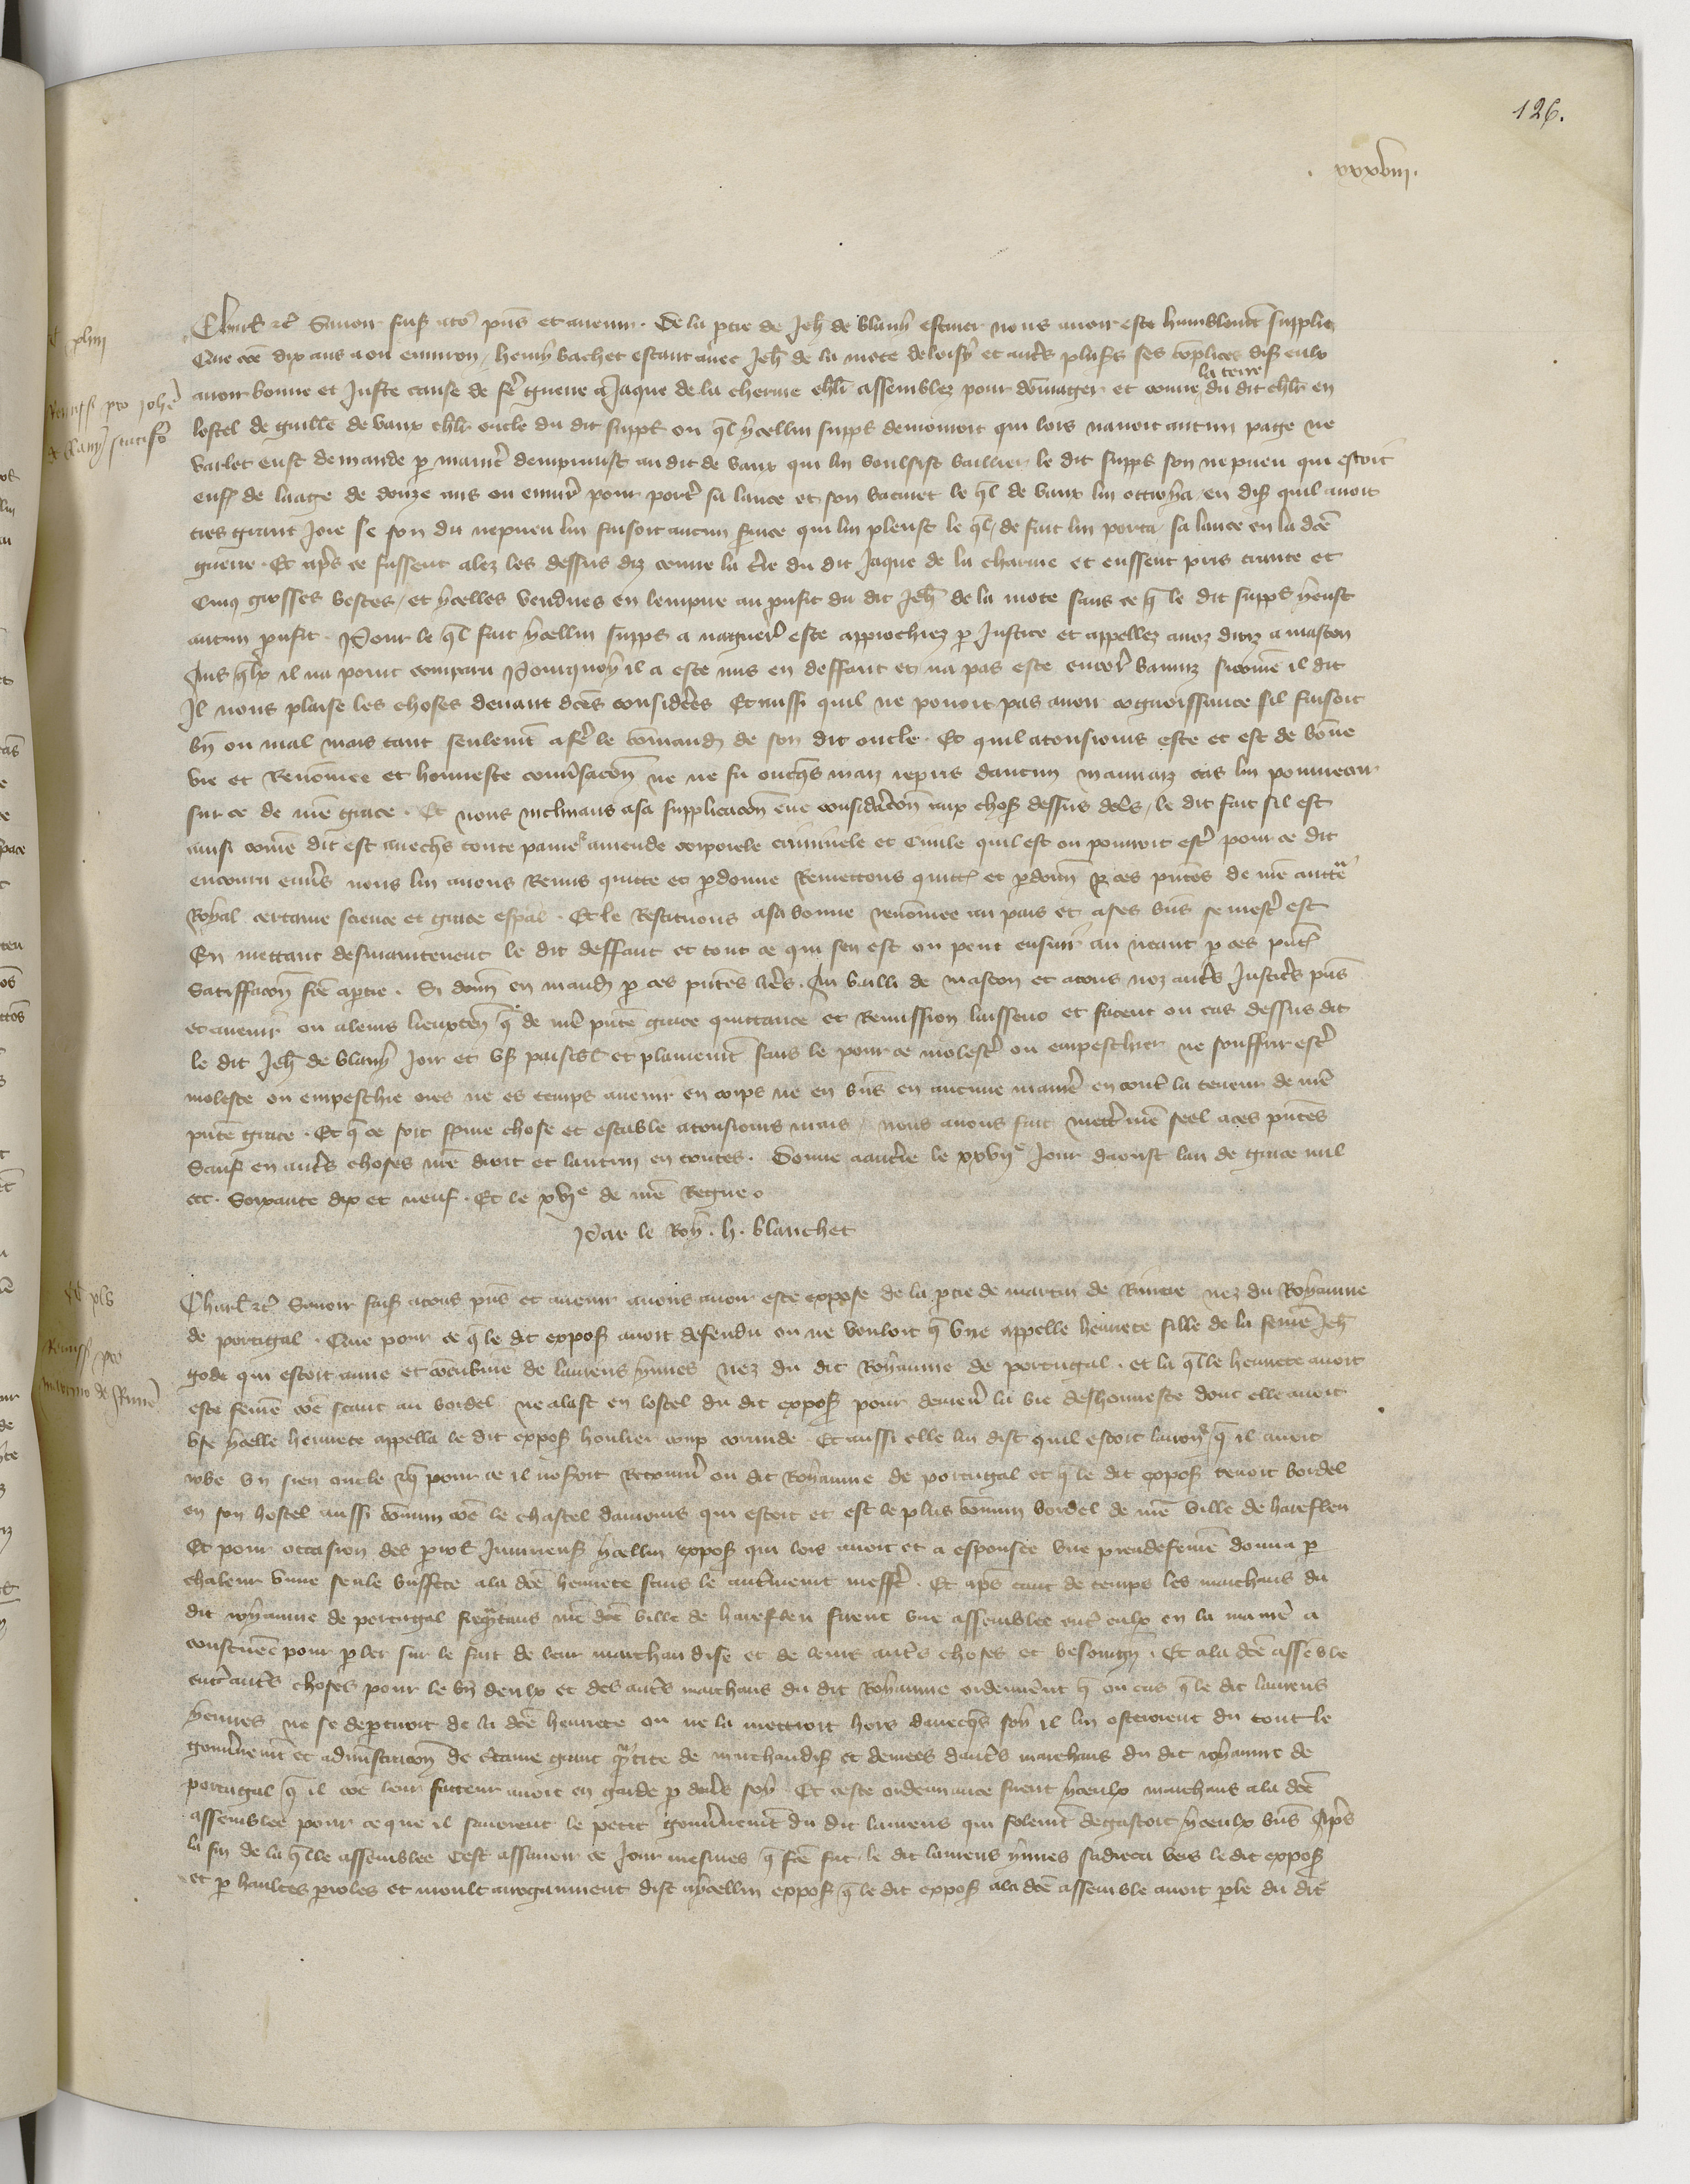 126.
. xxxviii.
Charles etc̃ Savoir fais̃ a to⁹ pñs et avenir . De la p̱tie de Jeh̃ de blany escuier nous avoir este humblem̃t supplie
Que cõe dix ans a ou environ / henry vachet estant avec Jeh̃ de la mote de loisy et aut̃s plus̃s ses cõplices dis̃ eulx
la terre
avoir bonne et juste cause de fẽ guerre a Jaque de la cherme chlr̃ assemblez pour dõmager et contre du dit chlr̃ en
lostel de guill̃e de vaux chlr̃ oncle du dit supp̃t ou q̃l ycellui supp̃t demouroit qui lors navoit aucun page ne
varlet eust demande p̱ manie᷒r demprunst au dit de vaux qui lui voulsist baillier le dit supp̃t son nepveu qui estoit
enf̃ de laage de douze ans ou envir̃ pour port̃ sa lance et son bacinet le q̃l de vaux lui ottroya en dis̃ quil avoit
tres grant joie se son dit nepveu lui faisoit aucun s̃vice qui lui pleust le q̃l / de fait lui porta sa lance en la dc̃e
guerre . Et ap̃s ce fussent alez les dessus diz contre la t̃re du dit Jaque de la charme et eussent pris trante et
Cinq grosses bestes / et ycelles vendues en lempire au p̃ufit du dit Jeh̃ de la mote sans ce q̃ le dit supp̃t y eust
aucun p̃ufit . Pour le q̃l fait ycellui supp̃t a nague᷒r este approchiez p̱ justice et appellez a noz droiz a mascon
Aus q̃lx il na point comparu Pourquoy il a este mis en deffaut et na pas este encor̃ banniz si cõme il dit
Il nous plaise les choses devant dc̃es consider̃es Et aussi quil ne povoit pas avoir cognoissance sil faisoit
bñ ou mal mais tant seulem̃t a fẽ le cõmand̃ de son dit oncle . Et quil a tousiours este et est de bõne
vie et Renõmee et honneste conṽsacõn ne ne fu onq̃s maiz repris daucun mauvaiz cas lui pourveoir
sur ce de nr̃e grace . Et nous inclinans a sa supplicacõn eue considerac̃on aux chos̃ dessus dc̃es / le dit fait sil est
ainsi cõme dit est avecq̃s toute paine amende corporele criminele et Civile quil est ou pourroit estr̃ pour ce dit
encouru enṽs nous lui avons Remis quitte et p̱donne Remettons quitt̃ et p̱donñ p̱ ces pñtes de nr̃e auct̃e
Royal certaine science et grace esp̃al . Et le Restituons a sa bonne renõmee au pais et a ses biñs se mest̃ est
En mettant desmaintenent le dit deffaut et tout ce qui sen est ou peut ensuir̃ au neant p̱ ces pñt̃
Satiffacõn fc̃e a p̱tie . Si donñ en mand̃ p̱ ces pñtes lr̃es . Au bailli de mascon et a tous noz aut̃s justic̃s pñs
et avenir ou a leurs lieuxten̄ q̃ de nr̃e pñte grace quittance et Remission laissent et facent ou cas dessus dit
le dit Jeh̃ de blany joir et us̃ paisibl̃ et plainem̃t sans le pour ce molest̃ ou empeschier ne souffrir estr̃
moleste ou empeschie ores ne es temps avenir en corps ne en biñs en aucune manie᷒r en cont̃ la teneur de nr̃e
pñte grace . Et q̃ ce soit ferme chose et estable a tousiours mais / nous avons fait mett̃ nr̃e seel a ces pñtes
Sauf en aut̃s choses nr̃e droit et lautrui en toutes . Donne a aut̃re le xxvijᵉ jour daoust lan de grace mil
ccc . Soixante dix et neuf . Et le xvjᵉ de nr̃e Regne .
Par le Roy . h . blanchet
Remiss̃ pro Joh̃e
de blany scutif̃o
Charl̃ etc̃ Savoir fais̃ a tous pñs et avenir a nous avoir este expose de la p̱tie de martin de Riviere nez du Royaume
de portugal . Que pour ce q̃ le dit expos̃ avoit defendu ou ne vouloit q̃ une appelle hennete fille de la fem̃e Jeh̃
gode qui estoit amie et cõcubine de laurens ynnes nez du dit Royaume de portugal . et la q̃lle hennete avoit
este fem̃e cõe seant au bordel ne alast en lostel du dit expos̃ pour demen̄ la vie deshonneste dont elle avoit
use ycelle hennete appella le dit expos̃ houlier coup truande Et aussi elle lui dist quil estoit larroñ / q̃ il avoit
robe un sien oncle et q̃ pour ce il nosoit Retourñ ou dit Royaume de portugal et q̃ le dit expos̃ tenoit bordel
en son hostel aussi cõmun cõe le chastel damours qui estoit et est le plus cõmun bordel de nr̃e ville de harefleu
Et pour occasion des p̱ol̃ injurieus̃ ycellui expos̃ qui lors avoit et a espousee une preudefem̃e donna p̱
chaleur une seule buffette a la dc̃e hennete sans le aut̃ment meff̃e . Et ap̃s tant de temps les marchans du
dit royaume de portugal freq̃tans nr̃e dc̃e ville de harefleu firent une assemblee ent̃ eulx en la manie᷒r a
coustume᷒ pour p̱ler sur le fait de leur marchandise et de leurs aut̃s choses et besoingñ . Et a la dc̃e assẽblee
ent̃ aut̃s choses pour le bñ deulx et des aut̃s marchans du dit Royaume ordenerent q̃ ou cas q̃ le dit laurens
yennes ne se dep̱tiroit de la dc̃e hennete ou ne la mettroit hors davecq̃s soy il lui osteroient du tout le
gouv̄nem̃t et admĩstracõn de c̃taine grant q̃tite de marchandis̃ et denrees daut̃s marchans du dit royaume de
portugal q̃ il cõe leur facteur avoit en garde p̱ dev̄s soy . Et ceste ordennance firent yceulx marchans a la dc̃e
assemblee pour ce que il savoient le petit gouv̄nem̃t du dit laurens qui folem̃t degastoit yceulx biñs Ap̃s
la fin de la q̃lle assemblee Cest assavoir ce jour mesmes q̃ fc̃e fut le dit laurens ynnes sadreca vers le dit expos̃
et p̱ haultes p̱oles et moult arrogaument dist a ycellui expos̃ q̃ le dit expos̃ a la dc̃e assemblee avoit p̱le du dit
Remiss̃ pro
martino de Rivie᷒